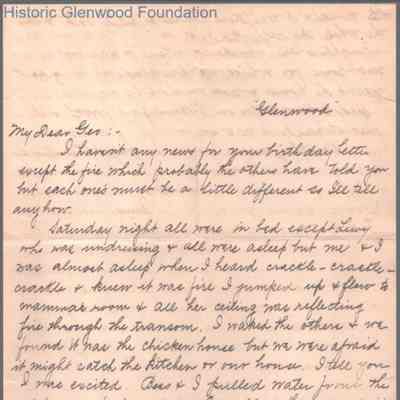 Historic Glenwood Foundation
"Glenwood"
My Dear Geo:-
I haven't any news for your birthday letter
except the fire which probably the others have told you
but each one's must be a little different so I'll tell
anyhow.
Saturday night all were in bed except Lucy
who was undressing & all were asleep but me & I
was almost asleep when I heard crackle-crackle-
crackle & knew it was fire I jumped up & flew to
mamma's room & all her ceiling was reflecting
fire through the transom. I waked the others & we
found it was the chicken house but we were afraid
it might catch the kitchen or our house. I tell you
I was excited. Bess & I pulled water from the